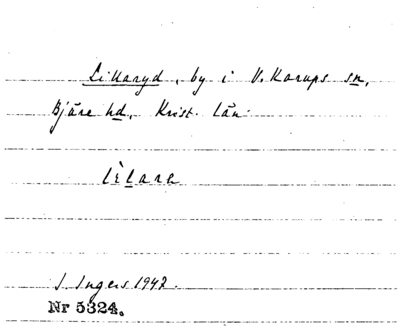 Lillaryd, by i V. Karups sn,
Bjäre hd, Krist. län.
Lèlare
I. Ingers 1942.
Nr 5324.